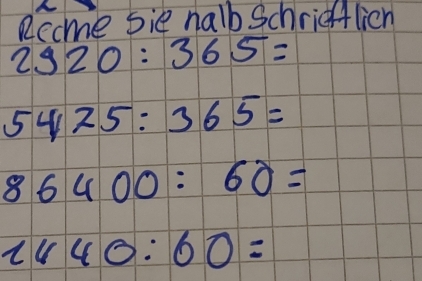 Reccme Sie halb schriftlich
2920 : 365 =
5475 : 365 =
86400 : 60 =
1440 : 60 =